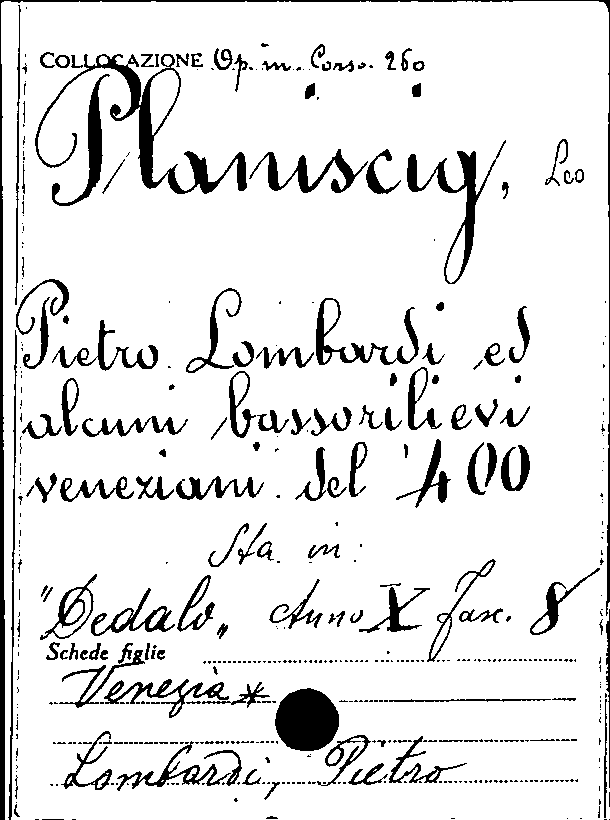 COLLOCAZIONE Op. in. Corso. 260
Planiscig, Leo
Pietro Lombardi ed
alcuni bassorilievi
veneziani del '400
Sta in:
"Dedalo„ Anno X Fasc. 8
Schede figlie
Venezia *
Lombardi, Pietro